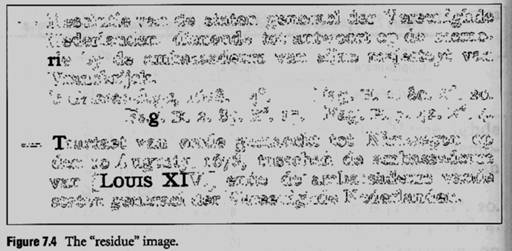 Resolutie van de staten generael der Vereenighde
Nederlanden dienende tot antwoort op de memo-
rie by de ambassadeurs van sijne majesteyt van
Vranckrijck.
's Graven-hage, 1678. 4°. Fag. H. 2. 80. n°. 20.
Fag. H. 2. 85. n°. 12. Fag. H. 3. 42. n°. 4.
Tractaet van vrede gemaeckt tot Nimwegen op
den 10 Augusty, 1678, tusschen de ambassadeurs
van [Louis XIV.] ende de ambassadeurs vande
staten generael der Vereenighde Nederlanden.
Figure 7.4 The “residue” image.